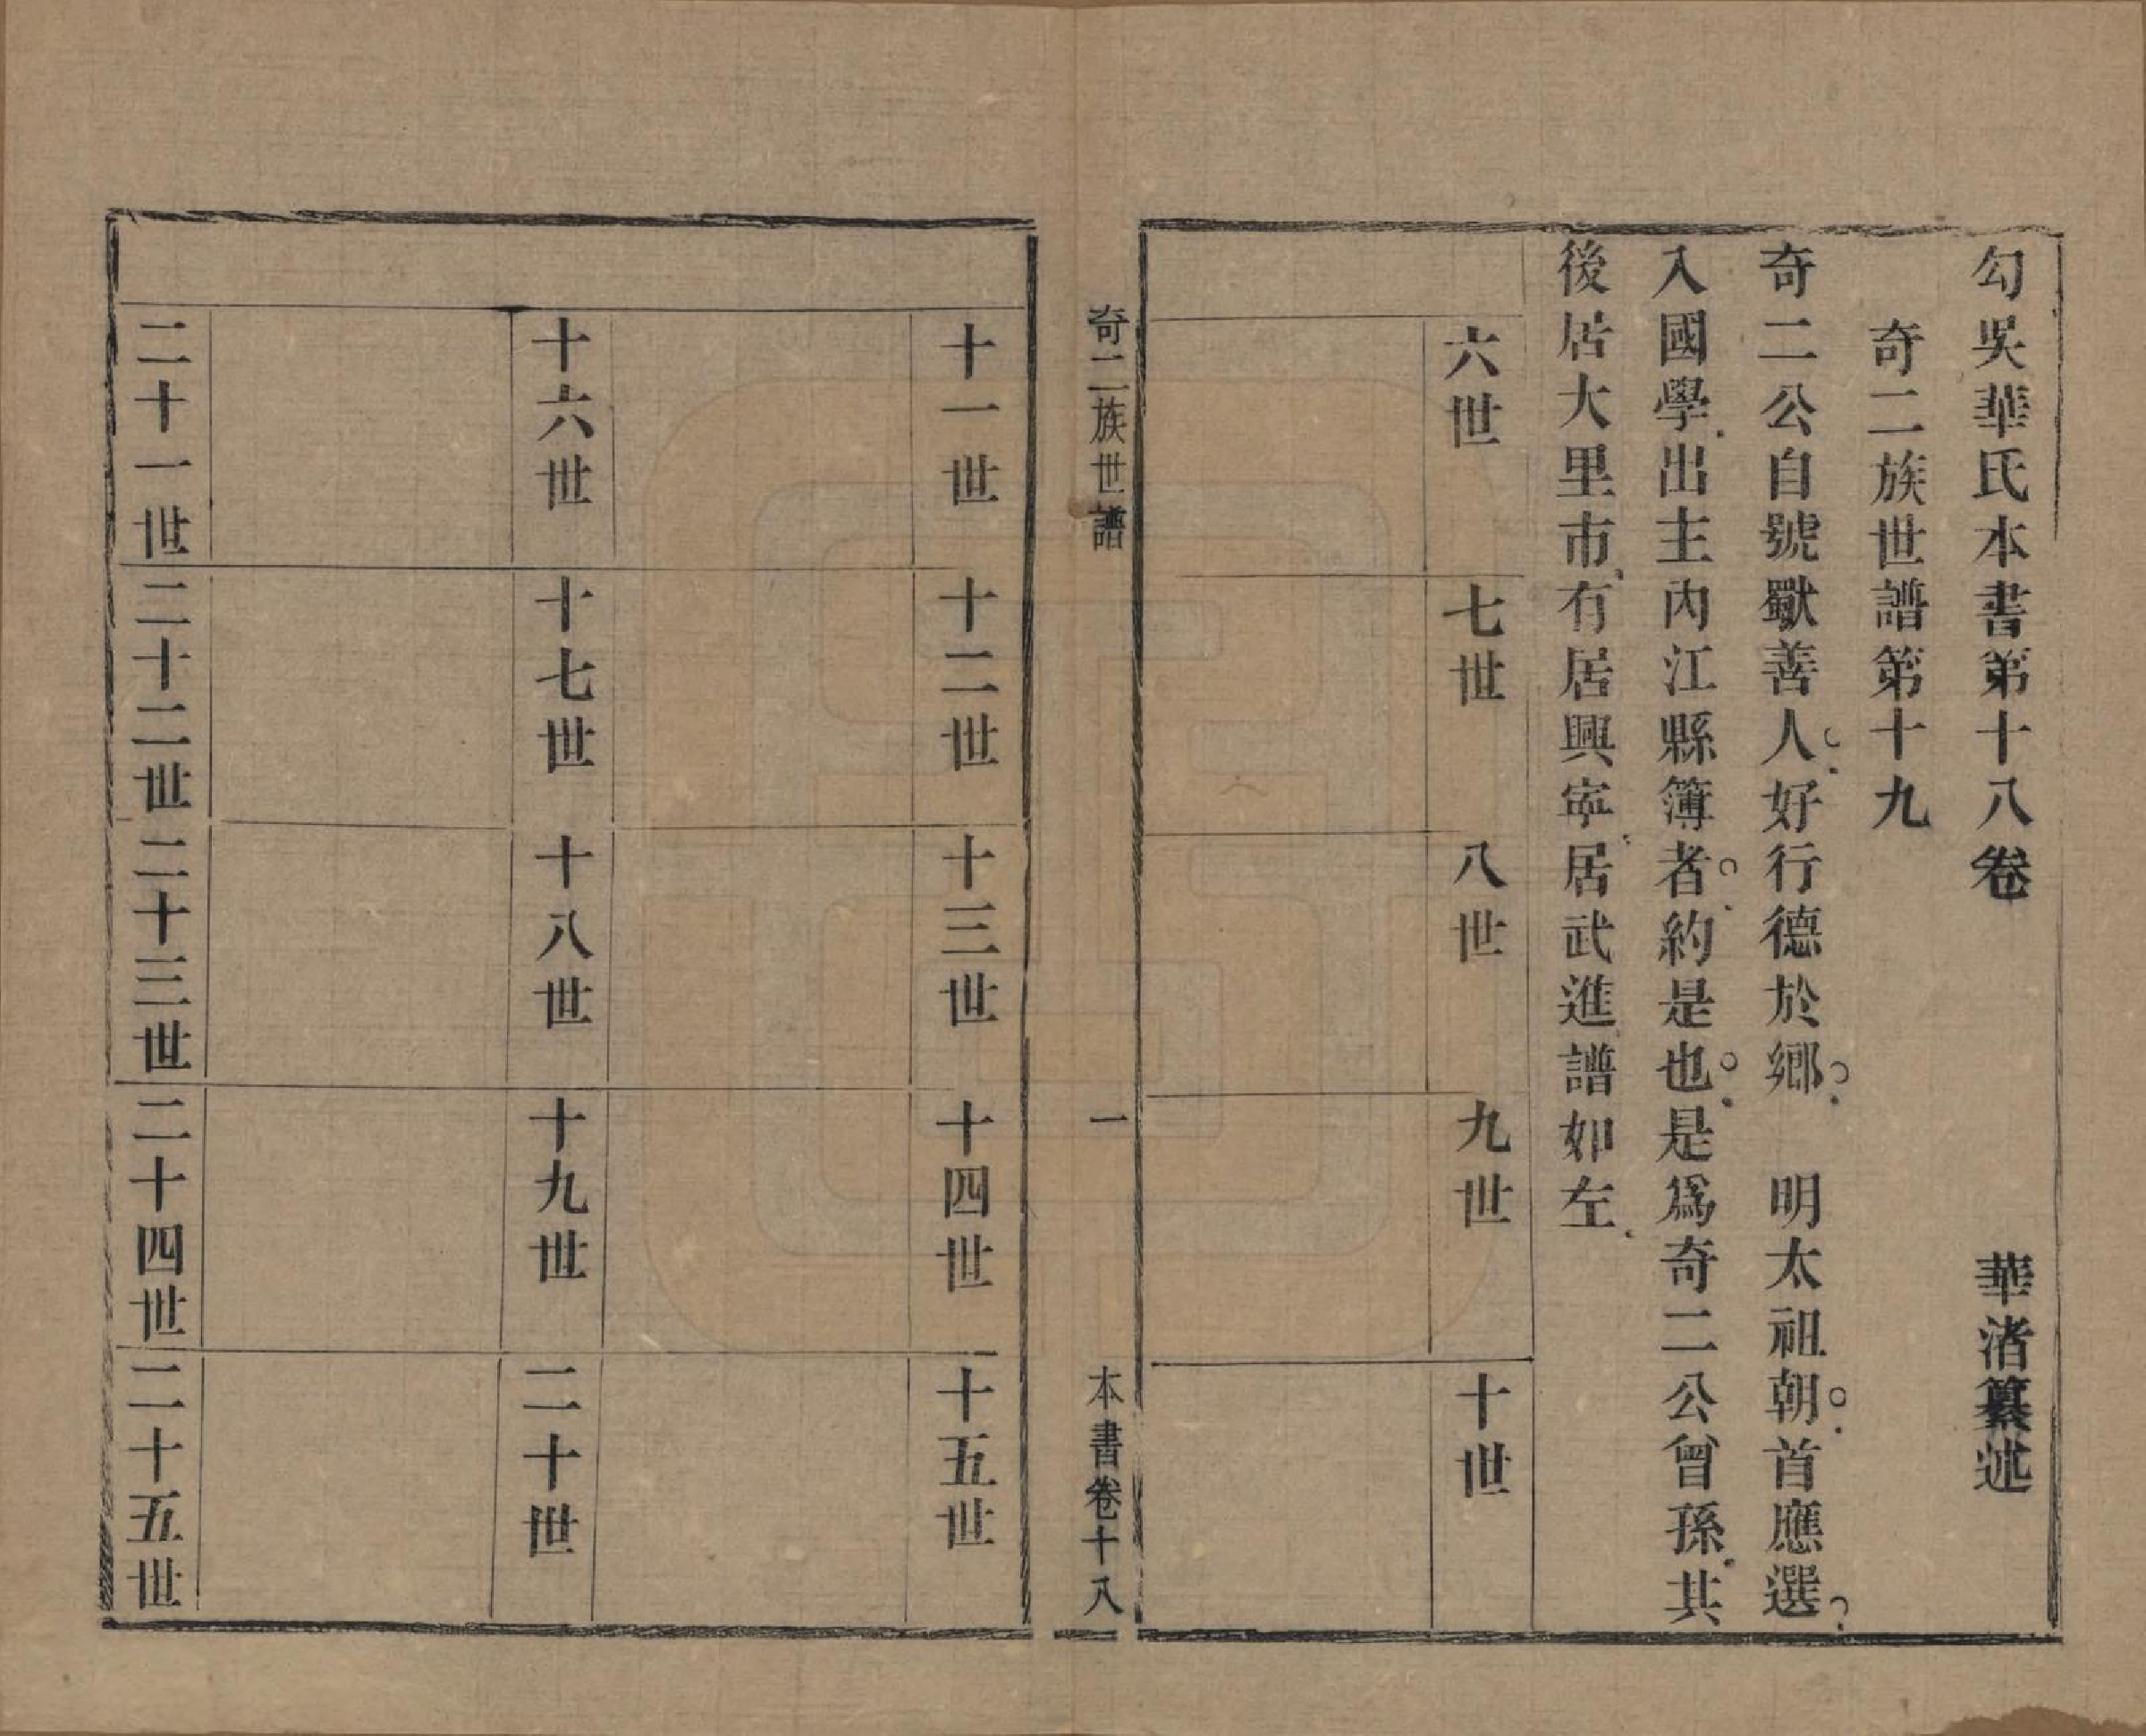 勾吳華氏本書第十八卷　華渚纂述
奇二族世譜第十九
奇二公自號獸善人好行德於鄉　明太祖朝首應選
入國學出主內江縣簿者約是也是爲奇二公曾孫其
後居大里市有居興寧居武進譜如左
六世　七世　八世　九世　十世
奇二族世譜　一　本書卷十八
十一世　十二世　十三世　十四世　十五世
十六世　十七世　十八世　十九世　二十世
二十一世　二十二世　二十三世　二十四世　二十五世